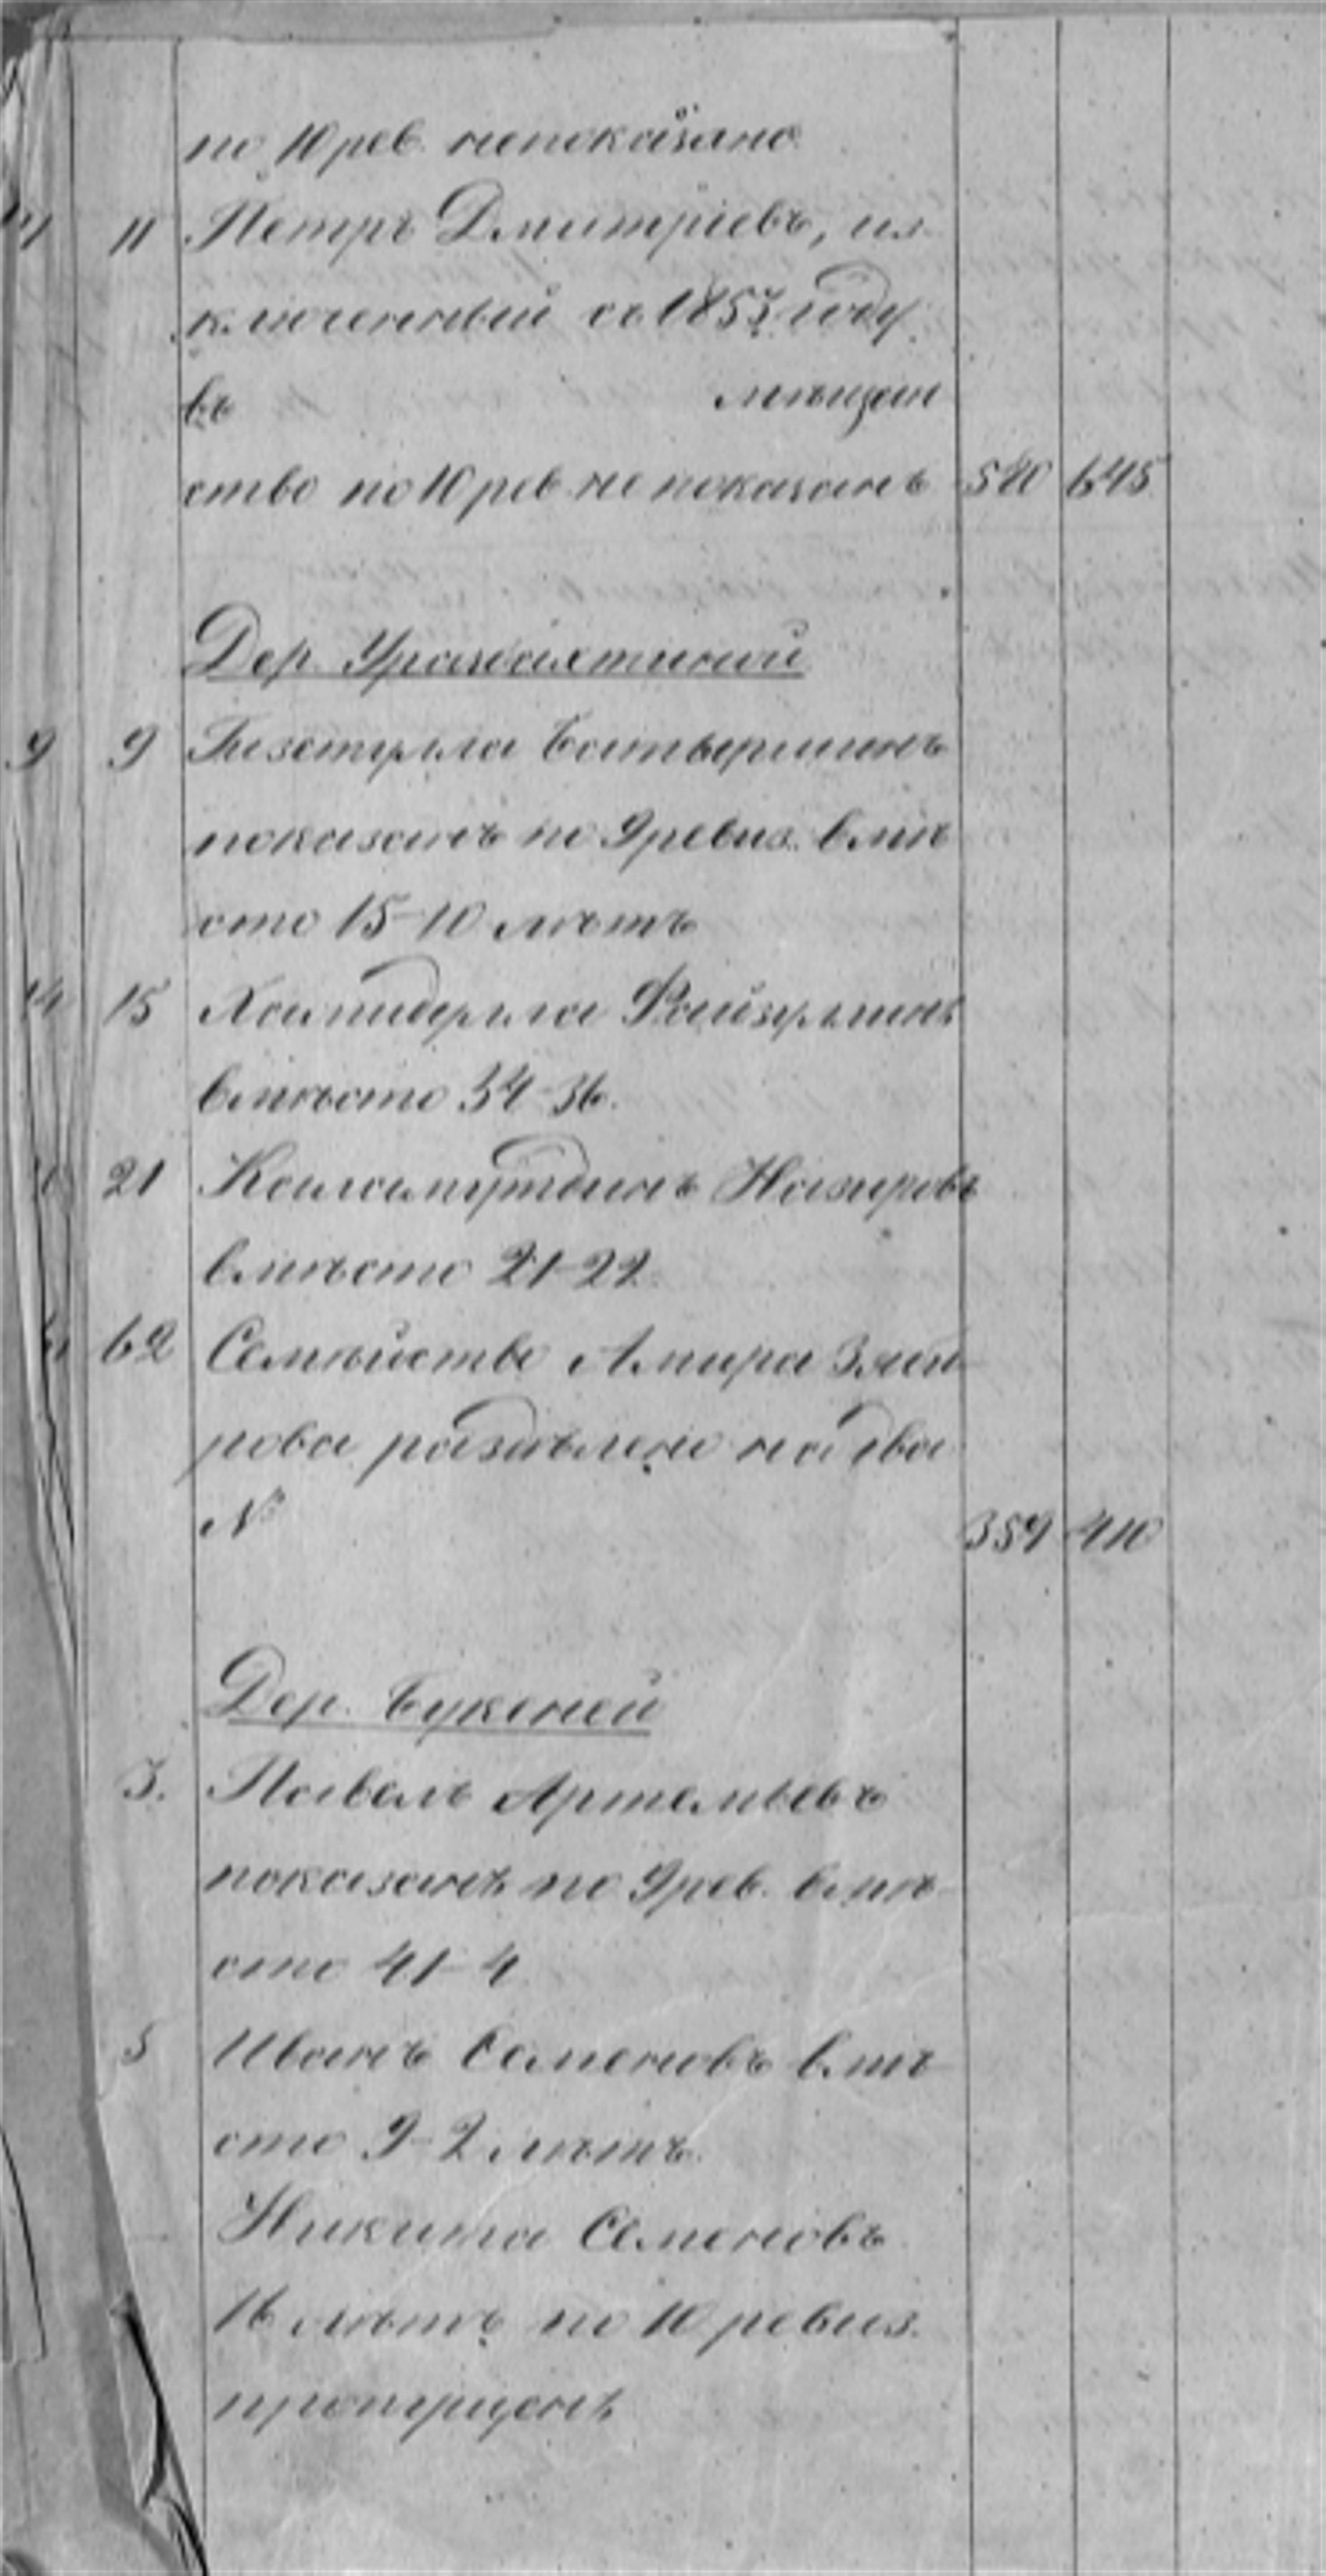 по 10 рев. непоказано
11 Петръ Дмитріевъ, ис
ключенный съ 1853 году
въ мѣщан
ство по 10 рев. не показанъ 540 645
Дер. Уразбахтиной
9 9 Гизетулла Батыршинъ
показанъ по 9 ревиз. вмѣ
сто 15-10 лѣтъ
14 15 Хамидулла Файзуллинъ
вмѣсто 34-36.
21 Каламутдинъ Назировъ
вмѣсто 21-22.
62 Семѣйство Амира Зяби
рова раздѣлено на два
№ 359 410
Дер. Букеней
3. Павелъ Артемьевъ
показанъ по 9 рев. вмѣ
сто 41-4
5 Иванъ Семеновъ вмѣ
сто 9-2 лѣтъ.
Никита Семеновъ
16 лѣтъ по 10 ревиз.
пропущенъ